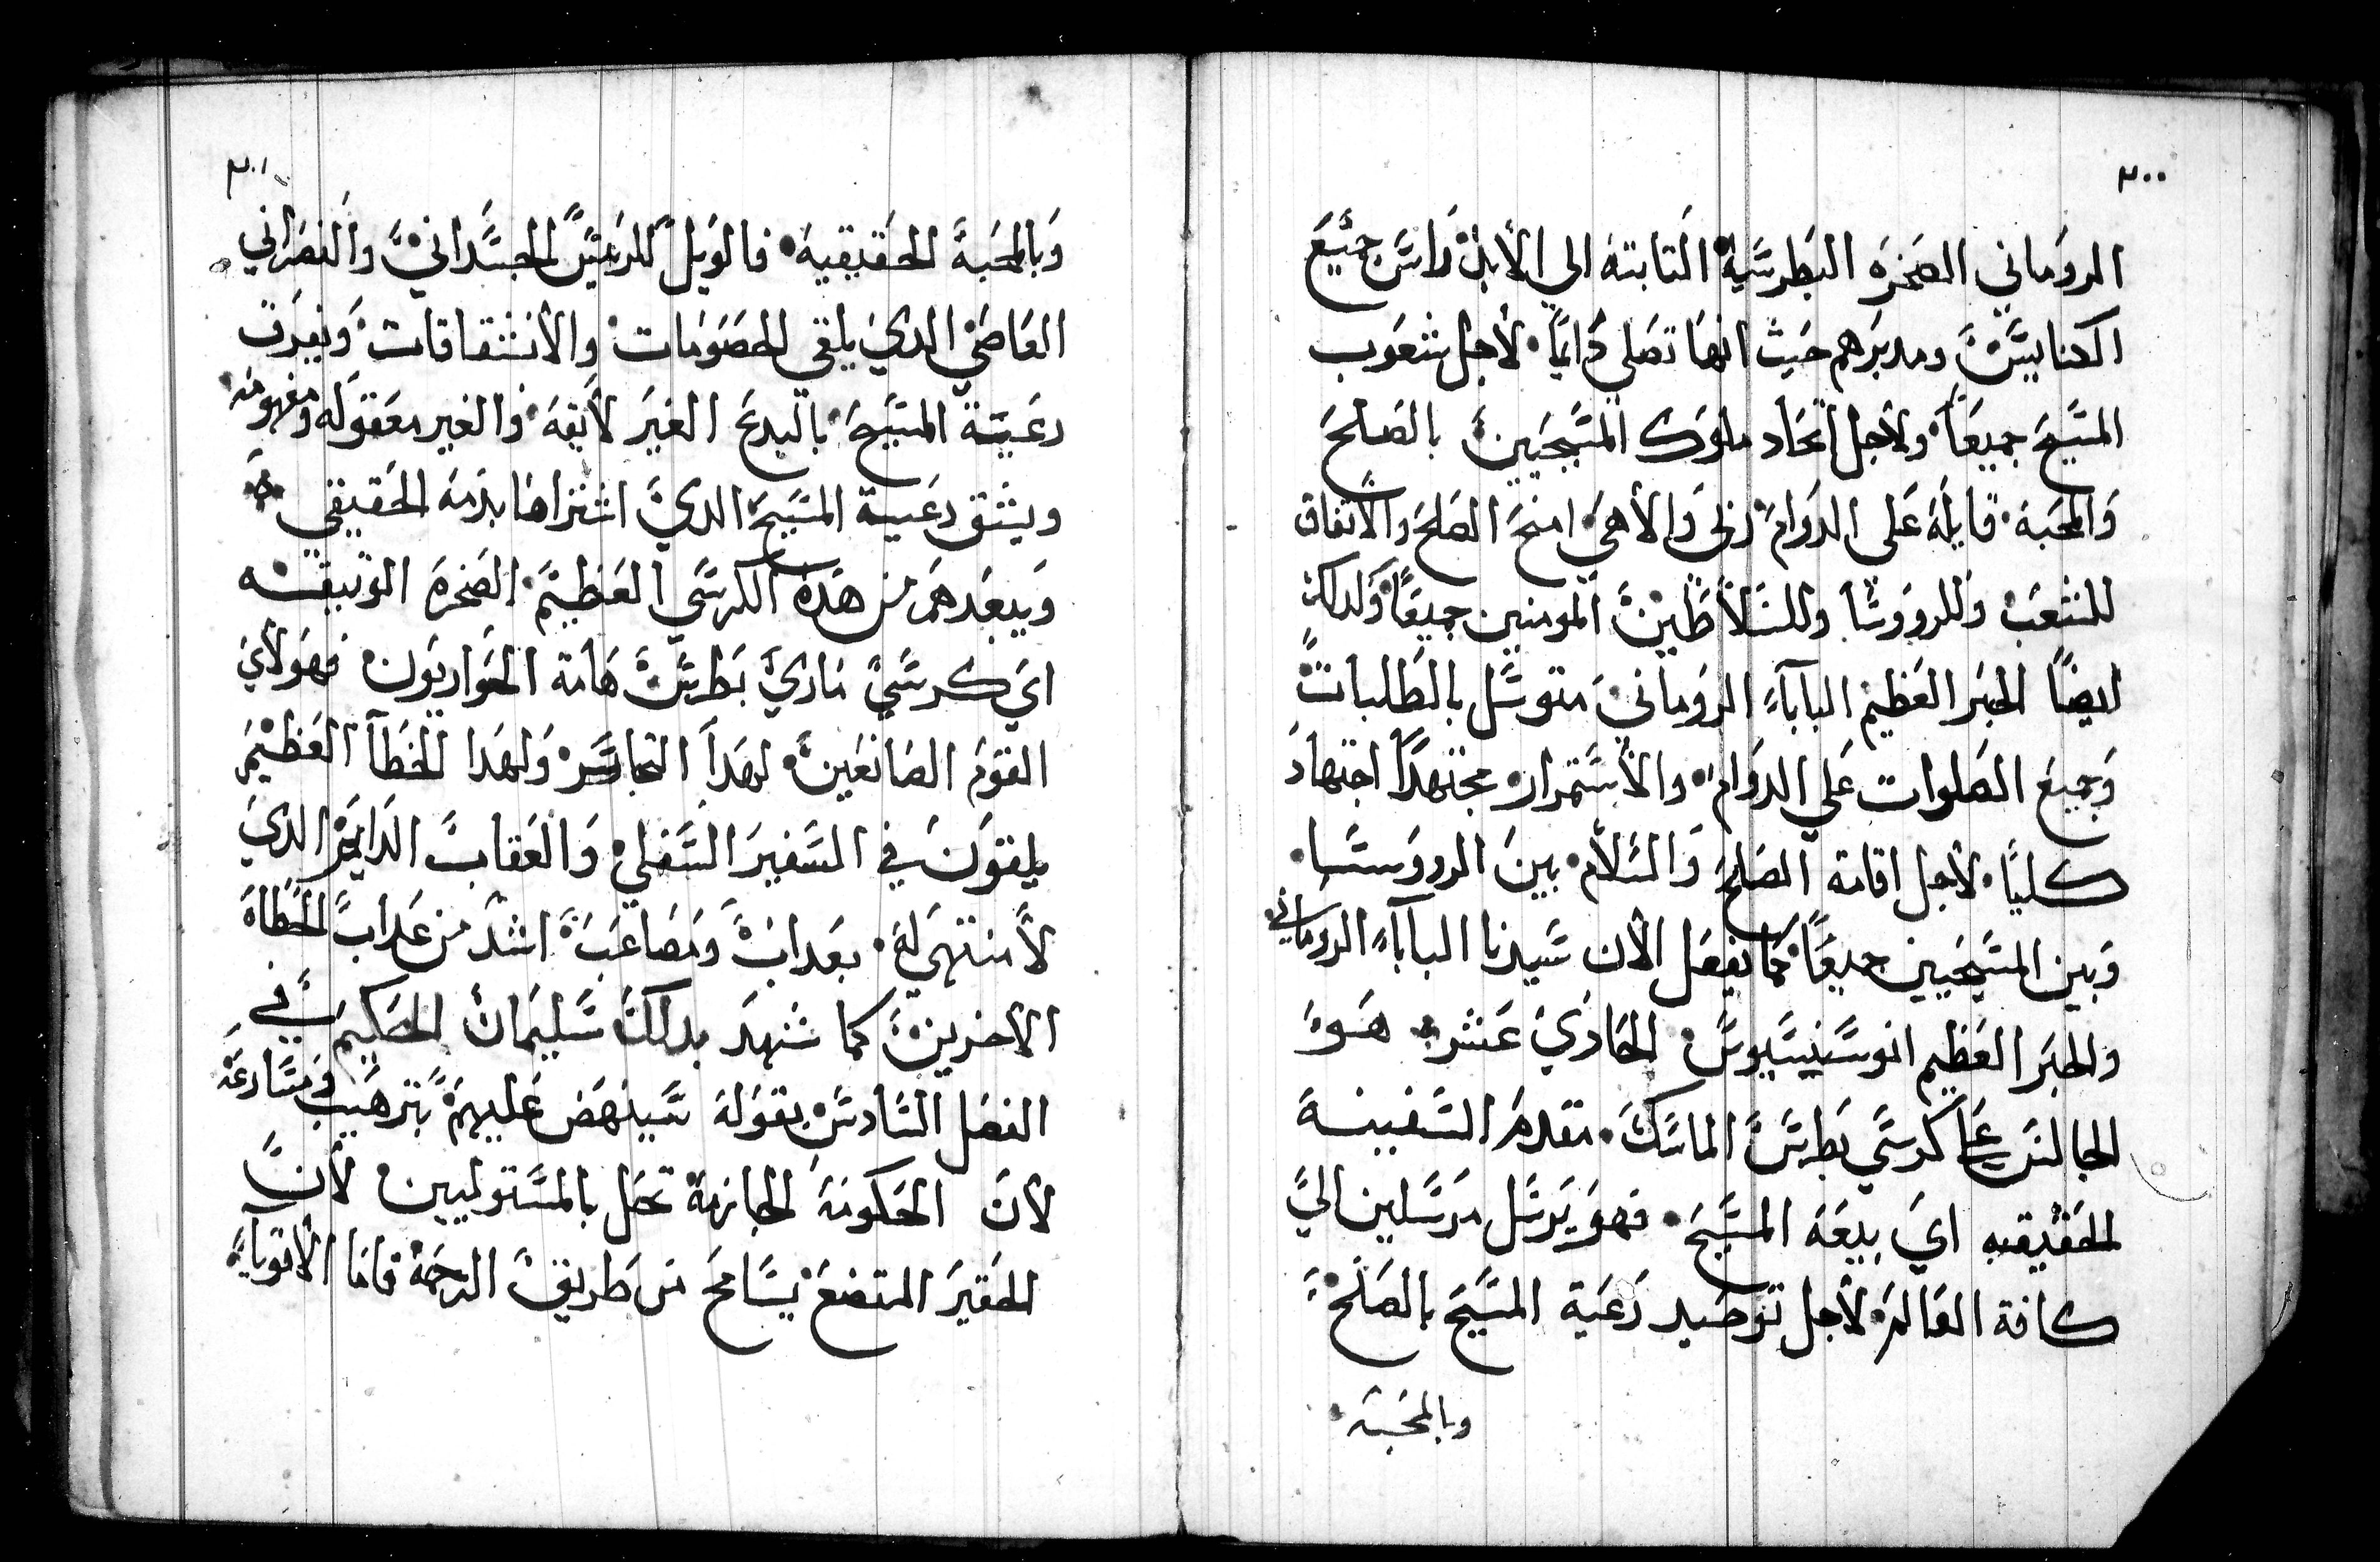 ٣٠٠
الروماني الصخره البطرسية الثابتة الى الأبد راس جميع
الكنايس ومدبرهم حيث انها تصلي دايماً لأجل شعوب
المسيح جميعاً ولأجل اتحاد ملوك المسيحيين بالصلح
والمحبة قايلة على الدوام ربي والأهي امنح الصلح والاتفاق
للشعب وللرووسا وللسلاطين المومنين جميعاً وكدلك
ايضاً الحبر العظيم الباباء الروماني متوسل بالطلبات
وجميع الصلوات علي الدوام والأستمرار مجتهداً اجتهاد
كلياً لأجل اقامة الصلح والسلام بين الرووسا
وبين المسيحيين جميعاً كما يفعل الأن سيدنا الباباء الروماني
والحبر العظيم انوسنيسيوس الحادي عشر هو
الجالس على كرسي بطرس الماسك مقدم السفينة
الحقيقيه اي بيعة المسيح فهو يرسل مرسلين الي
كافة العالم لأجل توحيد رعية المسيح بالصلح
وبالمحبة
٣٠١
وبالمحبة الحقيقية فالويل للرييس الجسداني والنصراني
العاصي الدي يلقي الخصومات والأنشقاقات ويفرق
رعية المسيح بالبدع الغير لأيقة والغير معقوله ومفهومه
ويشق رعية المسيح الدي اشتراها بدمه الحقيقي
ويبعدهم من هده الكرسي العظيم الصخرة الوثيقه
اي كرسي ماري بطرس هامة الحواريون فهولأي
القوم الصانعين لهدا التجاسر ولهدا الخطا العظيم
يلقون في السفير السفلي والعقاب الدايم الدي
لأ منتهي له بعداب ومصاعب اشد من عداب الخطاه
الأخرين كما شهد بدلك سليمان الحكيم في
الفصل السادس بقوله سينهض عليهم بترهيب ومسارعة
لأن الحكومة الجازمة تحل بالمستوليين لأن
الحقير المتضع يسامح من طريق الرحمة فاما الأقوياء